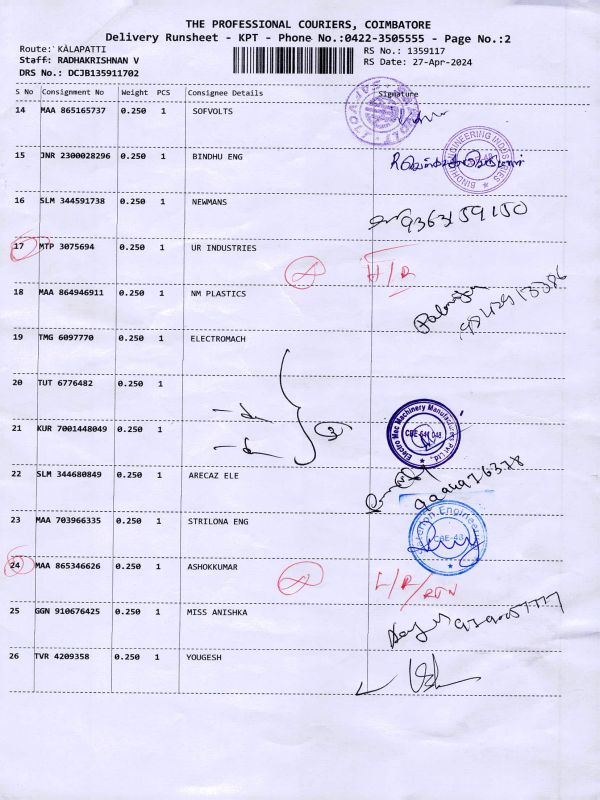 THE PROFESSIONAL COURIERS, COIMBATORE
Delivery Runsheet - KPT - Phone No.:0422-3505555 - Page No.:2
Route: KALAPATTI
RS No.: 1359117
Staff: RADHAKRISHNAN V
RS Date: 27-Apr-2024
DRS No.: DCJB135911702
S No Consignment No Weight PCS Consignee Details Signature
14 MAA 865165737 0.250 1 SOFVOLTS
15 JNR 2300028296 0.250 1 BINDHU ENG
BINDHU ENGINEERING INDUSTRIES
16 SLM 344591738 0.250 1 NEWMANS
9363159150
17 MTP 3075694 0.250 1 UR INDUSTRIES
H/R
18 MAA 864946911 0.250 1 NM PLASTICS
19 TMG 6097770 0.250 1 ELECTROMACH
20 TUT 6776482 0.250 1
21 KUR 7001448049 0.250 1
3
Electro Mec Machinery Manufactures Pvt. Ltd.
CBE-641 048
22 SLM 344680849 0.250 1 ARECAZ ELE
23 MAA 703966335 0.250 1 STRILONA ENG
CBE-48
24 MAA 865346626 0.250 1 ASHOKKUMAR
L/R/RTN
25 GGN 910676425 0.250 1 MISS ANISHKA
26 TVR 4209358 0.250 1 YOUGESH